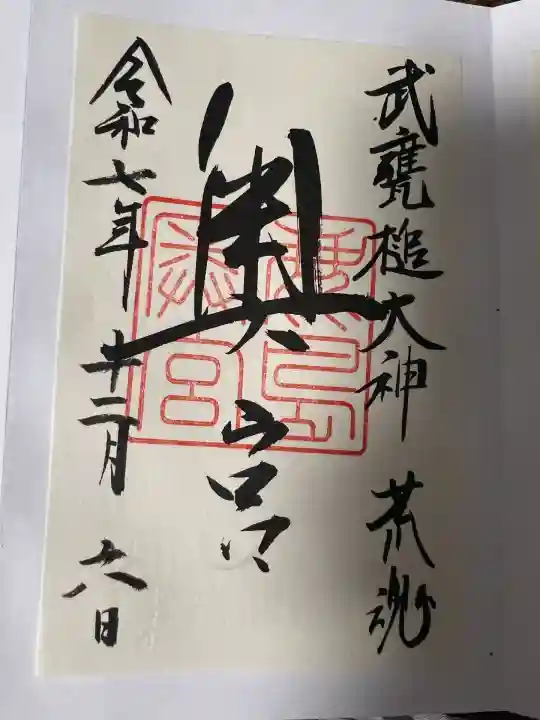 武甕槌大神 荒魂
奥宮
鹿島神宮
令和七年十二月六日